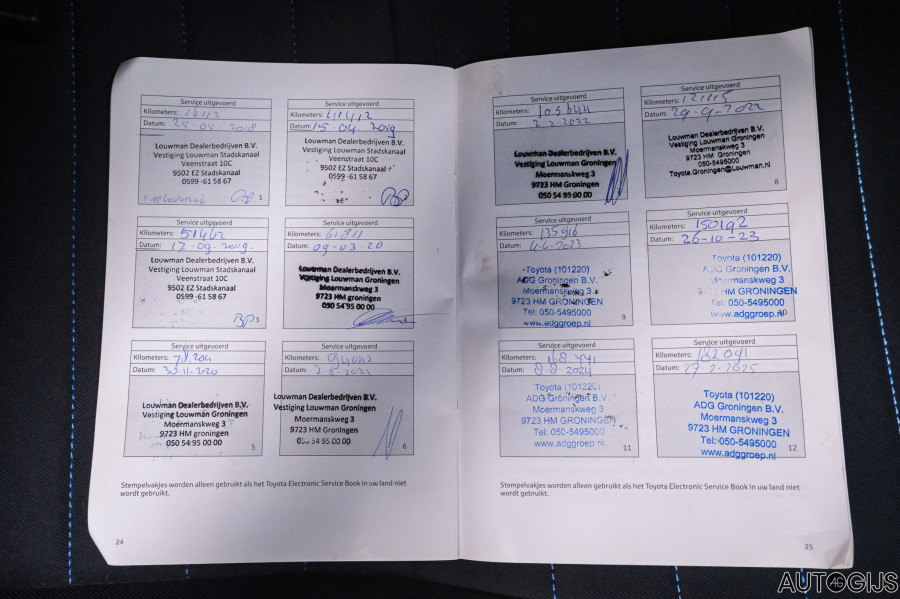 Service uitgevoerd
Kilometers:
Datum: 25-05-2018
Louwman Dealerbedrijven B.V.
Vestiging Louwman Stadskanaal
Veenstraat 10C
9502 EZ Stadskanaal
0599 -61 58 67
1
Service uitgevoerd
Kilometers:
Datum: 15-04-2019
Louwman Dealerbedrijven B.V.
Vestiging Louwman Stadskanaal
Veenstraat 10C
9502 EZ Stadskanaal
0599 -61 58 67
Service uitgevoerd
Kilometers: 51462
Datum: 17-09-2019.
Louwman Dealerbedrijven B.V.
Vestiging Louwman Stadskanaal
Veenstraat 10C
9502 EZ Stadskanaal
0599 -61 58 67
BP 3
Service uitgevoerd
Kilometers: 61811
Datum: 09-03-20
Louwman Dealerbedrijven B.V.
Vestiging Louwman Groningen
Moermanskweg 3
9723 HM groningen
050 54 95 00 00
Service uitgevoerd
Kilometers:
Datum: 30-11-2020
Louwman Dealerbedrijven B.V.
Vestiging Louwman Groningen
Moermanskweg 3
9723 HM groningen
050 54 95 00 00
5
Service uitgevoerd
Kilometers:
Datum: 2-8-2021
Louwman Dealerbedrijven B.V.
Vestiging Louwman Groningen
Moermanskweg 3
9723 HM Groningen
050 54 95 00 00
6
Stempelvakjes worden alleen gebruikt als het Toyota Electronic Service Book in uw land niet
wordt gebruikt.
24
Service uitgevoerd
Kilometers: 105644
Datum: 2-2-2022
Louwman Dealerbedrijven B.V.
Vestiging Louwman Groningen
Moermanskweg 3
9723 HM Groningen
050 54 95 00 00
Service uitgevoerd
Kilometers: 121115
Datum: 29-9-2022
Louwman Dealerbedrijven B.V.
Vestiging Louwman Groningen
Moermanskweg 3
9723 HM Groningen
050-5495000
Toyota.Groningen@Louwman.nl
8
Service uitgevoerd
Kilometers: 135916
Datum: 4-4-2023
Toyota (101220)
ADG Groningen B.V.
Moermanskweg 3
9723 HM GRONINGEN
Tel: 050-5495000
www.adggroep.nl
9
Service uitgevoerd
Kilometers: 150192
Datum: 26-10-23
Toyota (101220)
ADG Groningen B.V.
Moermanskweg 3
9723 HM GRONINGEN
Tel: 050-5495000
www.adggroep.nl
10
Service uitgevoerd
Kilometers: 168.441
Datum: 8-8-2024
Toyota (101220)
ADG Groningen B.V.
Moermanskweg 3
9723 HM GRONINGEN
Tel: 050-5495000
www.adggroep.nl
11
Service uitgevoerd
Kilometers: 182091
Datum: 27-2-2025
Toyota (101220)
ADG Groningen B.V.
Moermanskweg 3
9723 HM GRONINGEN
Tel: 050-5495000
www.adggroep.nl
12
Stempelvakjes worden alleen gebruikt als het Toyota Electronic Service Book in uw land niet
wordt gebruikt.
25
AUTOGIJS